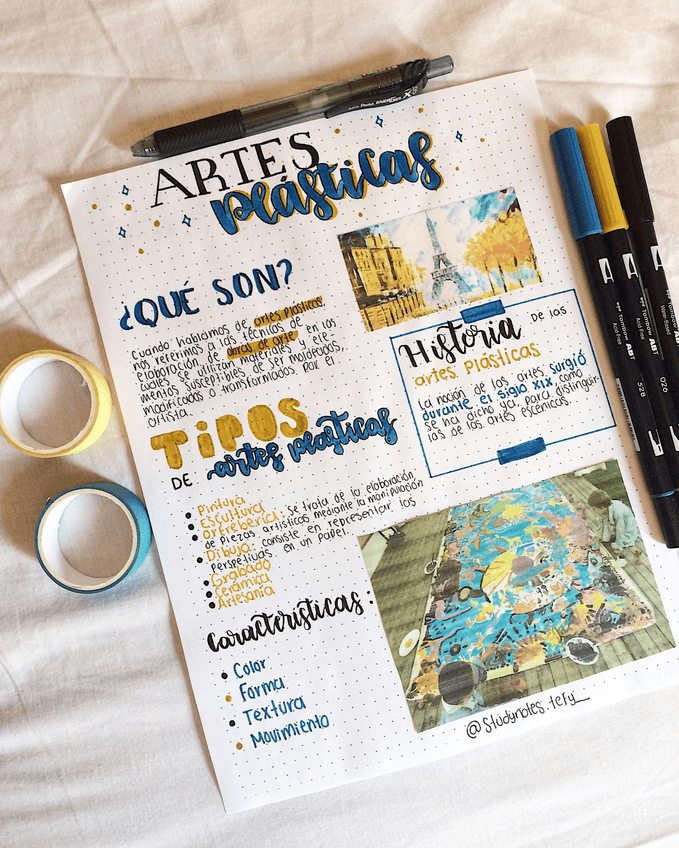 ARTES
plásticas
¿QUÉ SON?
Cuando hablamos de artes plásticas,
nos referimos a las técnicas de
elaboración de obras de arte en las
cuales se utilizan materiales y ele-
mentos susceptibles de ser moldeados,
modificados o transformados por el
artista.
Historia DE las
artes plásticas
La noción de las artes surgió
durante el siglo XIX como
se ha dicho ya, para distinguir-
las de las artes escénicas.
TIPOS
DE artes plásticas
Pintura
Escultura
Orfebrería: se trata de la elaboración
de piezas artísticas mediante la manipulación
Dibujo: consiste en representar las
perspetivas en un papel.
Grabado
Cerámica
Artesanía
Características:
Color
Forma
Textura
Movimiento
@studynotes.tefy_
A
A
A
Tombow ABT
Acid Free
Tombow ABT
Acid Free
Tombow ABT
528
026